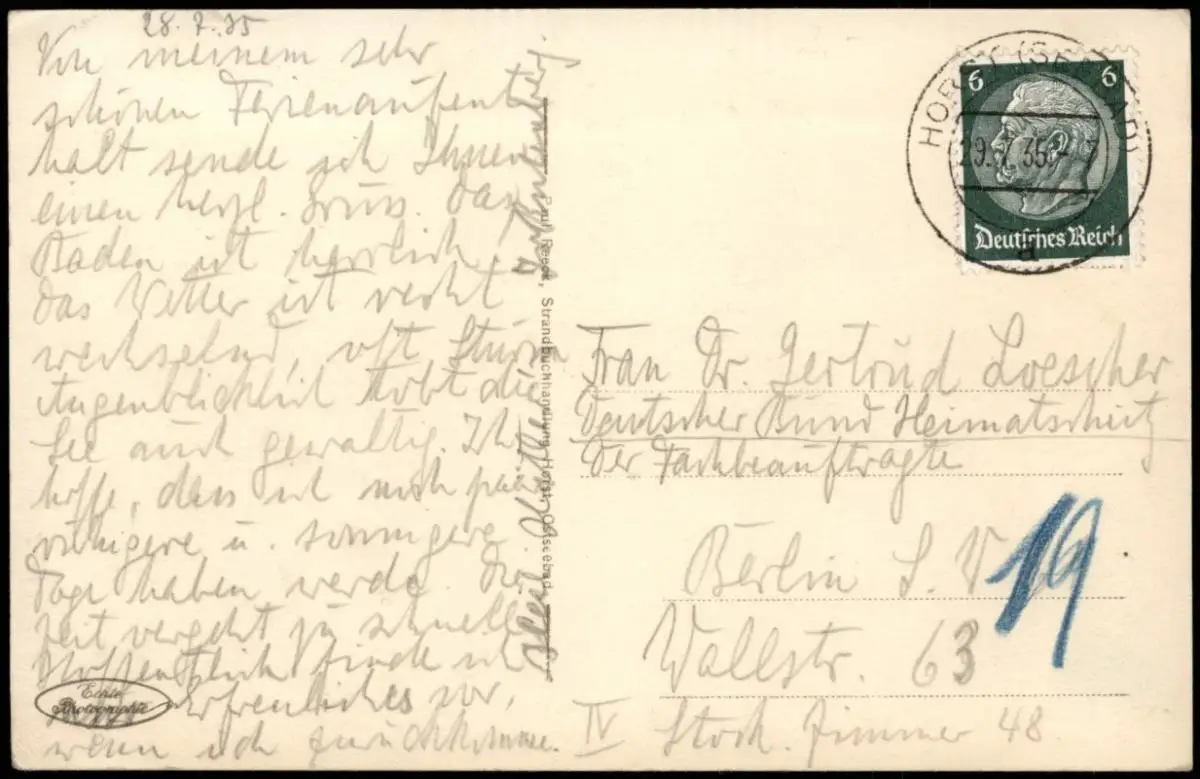 28.7.35
Von meinem sehr
schönen Ferienaufent-
halt sende ich Ihnen
einen herzl. Gruss. Das
Baden ist herrlich,
das Wetter ist recht
wechselnd, oft Sturm
Augenblicklich tobt die
See auch gewaltig. Ich
hoffe, dass ich noch paar
ruhigere u. sonnigere
Tage haben werde. Die
Zeit vergeht zu schnell
Hoffentlich finde ich
Erfreuliches vor,
wenn ich zurückkomme.
Paul Reeck, Strandbuchhandlung, Horst, Ostseebad
Echte
Photographie
6 6
Deutsches Reich
HORST (SEEBAD)
29.7.35
a
Frau Dr. Gertrud Loescher
Deutscher Bund Heimatschutz
Der Fachbeauftragte
Berlin S. W
19
Wallstr. 63
IV Stock. Zimmer 48